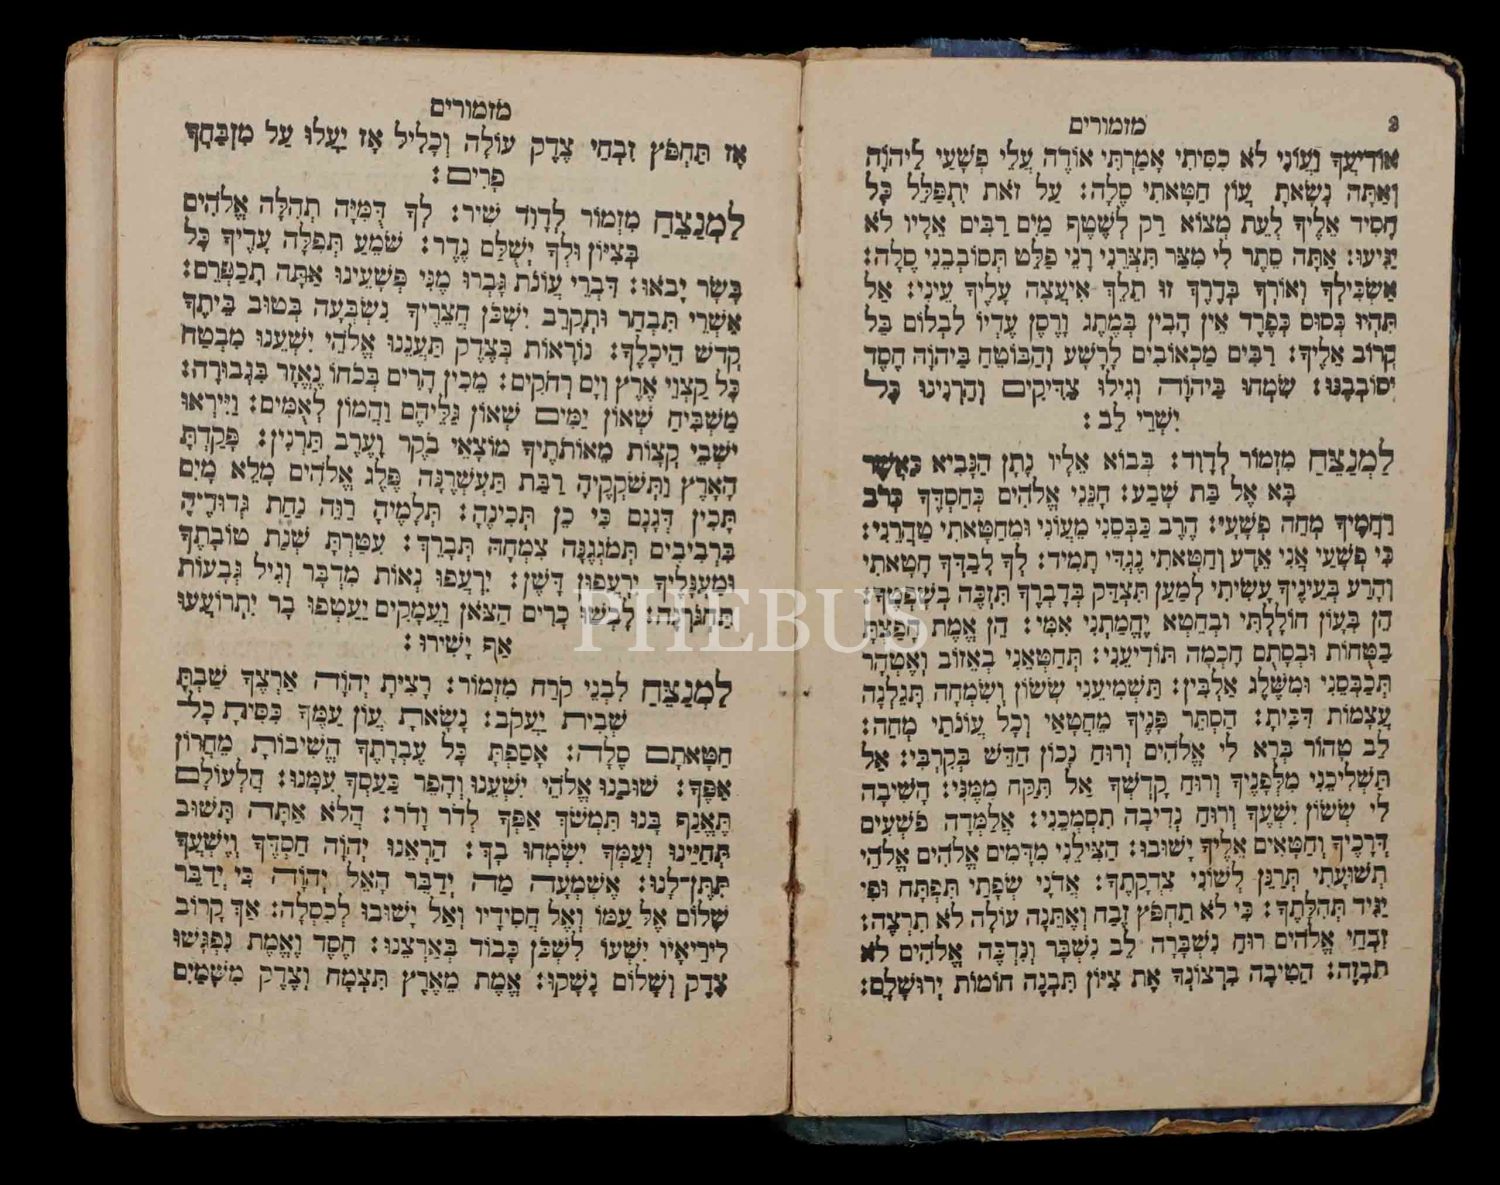 2 מזמורים
אוֹדִיעֲךָ וַעֲוֹנִי לֹא כִסִּיתִי אָמַרְתִּי אוֹדֶה עֲלֵי פְשָׁעַי לַיהוָה
וְאַתָּה נָשָׂאתָ עֲוֹן חַטָּאתִי סֶלָה: עַל זֹאת יִתְפַּלֵּל כָּל
חָסִיד אֵלֶיךָ לְעֵת מְצוֹא רַק לְשֵׁטֶף מַיִם רַבִּים אֵלָיו לֹא
יַגִּיעוּ: אַתָּה סֵתֶר לִי מִצַּר תִּצְּרֵנִי רָנֵּי פַלֵּט תְּסוֹבְבֵנִי סֶלָה:
אַשְׂכִּילְךָ וְאוֹרְךָ בְּדֶרֶךְ זוּ תֵלֵךְ אִיעֲצָה עָלֶיךָ עֵינִי: אַל
תִּהְיוּ כְּסוּס כְּפֶרֶד אֵין הָבִין בְּמֶתֶג וָרֶסֶן עֶדְיוֹ לִבְלוֹם בַּל
קְרוֹב אֵלֶיךָ: רַבִּים מַכְאוֹבִים לָרָשָׁע וְהַבּוֹטֵחַ בַּיהוָה חֶסֶד
יְסוֹבְבֶנּוּ: שִׂמְחוּ בַיהוָה וְגִילוּ צַדִּיקִים וְהַרְנִינוּ כָּל
יִשְׁרֵי לֵב:
לַמְנַצֵּחַ מִזְמוֹר לְדָוִד: בְּבוֹא אֵלָיו נָתָן הַנָּבִיא כַּאֲשֶׁר
בָּא אֶל בַּת שָׁבַע: חָנֵּנִי אֱלֹהִים כְּחַסְדֶּךָ כְּרֹב
רַחֲמֶיךָ מְחֵה פְשָׁעָי: הֶרֶב כַּבְּסֵנִי מֵעֲוֹנִי וּמֵחַטָּאתִי טַהֲרֵנִי:
כִּי פְשָׁעַי אֲנִי אֵדָע וְחַטָּאתִי נֶגְדִּי תָמִיד: לְךָ לְבַדְּךָ חָטָאתִי
וְהָרַע בְּעֵינֶיךָ עָשִׂיתִי לְמַעַן תִּצְדַּק בְּדָבְרֶךָ תִּזְכֶּה בְשָׁפְטֶךָ:
הֵן בְּעָוֹן חוֹלָלְתִּי וּבְחֵטְא יֶחֱמַתְנִי אִמִּי: הֵן אֱמֶת חָפַצְתָּ
בַטֻּחוֹת וּבְסָתֻם חָכְמָה תוֹדִיעֵנִי: תְּחַטְּאֵנִי בְאֵזוֹב וְאֶטְהָר
תְּכַבְּסֵנִי וּמִשֶּׁלֶג אַלְבִּין: תַּשְׁמִיעֵנִי שָׂשׂוֹן וְשִׂמְחָה תָּגֵלְנָה
עֲצָמוֹת דִּכִּיתָ: הַסְתֵּר פָּנֶיךָ מֵחֲטָאָי וְכָל עֲוֹנֹתַי מְחֵה:
לֵב טָהוֹר בְּרָא לִי אֱלֹהִים וְרוּחַ נָכוֹן חַדֵּשׁ בְּקִרְבִּי: אַל
תַּשְׁלִיכֵנִי מִלְּפָנֶיךָ וְרוּחַ קָדְשְׁךָ אַל תִּקַּח מִמֶּנִּי: הָשִׁיבָה
לִי שְׂשׂוֹן יִשְׁעֶךָ וְרוּחַ נְדִיבָה תִסְמְכֵנִי: אֲלַמְּדָה פֹשְׁעִים
דְּרָכֶיךָ וְחַטָּאִים אֵלֶיךָ יָשׁוּבוּ: הַצִּילֵנִי מִדָּמִים אֱלֹהִים אֱלֹהֵי
תְּשׁוּעָתִי תְּרַנֵּן לְשׁוֹנִי צִדְקָתֶךָ: אֲדֹנָי שְׂפָתַי תִּפְתָּח וּפִי
יַגִּיד תְּהִלָּתֶךָ: כִּי לֹא תַחְפֹּץ זֶבַח וְאֶתֵּנָה עוֹלָה לֹא תִרְצֶה:
זִבְחֵי אֱלֹהִים רוּחַ נִשְׁבָּרָה לֵב נִשְׁבָּר וְנִדְכֶּה אֱלֹהִים לֹא
תִבְזֶה: הֵטִיבָה בִרְצוֹנְךָ אֶת צִיּוֹן תִּבְנֶה חוֹמוֹת יְרוּשָׁלָםִ:
מזמורים
אָז תַּחְפֹּץ זִבְחֵי צֶדֶק עוֹלָה וְכָלִיל אָז יַעֲלוּ עַל מִזְבַּחֲךָ
פָרִים:
לַמְנַצֵּחַ מִזְמוֹר לְדָוִד שִׁיר: לְךָ דֻמִיָּה תְהִלָּה אֱלֹהִים
בְּצִיּוֹן וּלְךָ יְשֻׁלַּם נֶדֶר: שֹׁמֵעַ תְּפִלָּה עָדֶיךָ כָּל
בָּשָׂר יָבֹאוּ: דִּבְרֵי עֲוֹנֹת גָּבְרוּ מֶנִּי פְּשָׁעֵינוּ אַתָּה תְכַפְּרֵם:
אַשְׁרֵי תִּבְחַר וּתְקָרֵב יִשְׁכֹּן חֲצֵרֶיךָ נִשְׂבְּעָה בְּטוּב בֵּיתֶךָ
קְדֹשׁ הֵיכָלֶךָ: נוֹרָאוֹת בְּצֶדֶק תַּעֲנֵנוּ אֱלֹהֵי יִשְׁעֵנוּ מִבְטָח
כָּל קַצְוֵי אֶרֶץ וְיָם רְחֹקִים: מֵכִין הָרִים בְּכֹחוֹ נֶאְזָר בִּגְבוּרָה:
מַשְׁבִּיחַ שְׁאוֹן יַמִּים שְׁאוֹן גַּלֵּיהֶם וַהֲמוֹן לְאֻמִּים: וַיִּירְאוּ
יֹשְׁבֵי קְצָוֹת מֵאוֹתֹתֶיךָ מוֹצָאֵי בֹקֶר וָעֶרֶב תַּרְנִין: פָּקַדְתָּ
הָאָרֶץ וַתְּשֹׁקְקֶיהָ רַבַּת תַּעְשְׁרֶנָּה פֶּלֶג אֱלֹהִים מָלֵא מָיִם
תָּכִין דְּגָנָם כִּי כֵן תְּכִינֶהָ: תְּלָמֶיהָ רַוֵּה נַחֵת גְּדוּדֶיהָ
בִּרְבִיבִים תְּמֹגְגֶנָּה צִמְחָהּ תְּבָרֵךְ: עִטַּרְתָּ שְׁנַת טוֹבָתֶךָ
וּמַעְגָּלֶיךָ יִרְעֲפוּן דָּשֶׁן: יִרְעֲפוּ נְאוֹת מִדְבָּר וְגִיל גְּבָעוֹת
תַּחְגֹּרְנָה: לָבְשׁוּ כָרִים הַצֹּאן וַעֲמָקִים יַעַטְפוּ בָר יִתְרוֹעֲעוּ
אַף יָשִׁירוּ:
לַמְנַצֵּחַ לִבְנֵי קֹרַח מִזְמוֹר: רָצִיתָ יְהוָה אַרְצֶךָ שַׁבְתָּ
שְׁבִית יַעֲקֹב: נָשָׂאתָ עֲוֹן עַמֶּךָ כִּסִּיתָ כָל
חַטָּאתָם סֶלָה: אָסַפְתָּ כָל עֶבְרָתֶךָ הֱשִׁיבוֹתָ מֵחֲרוֹן
אַפֶּךָ: שׁוּבֵנוּ אֱלֹהֵי יִשְׁעֵנוּ וְהָפֵר כַּעַסְךָ עִמָּנוּ: הַלְעוֹלָם
תֶּאֱנַף בָּנוּ תִּמְשֹׁךְ אַפְּךָ לְדֹר וָדֹר: הֲלֹא אַתָּה תָּשׁוּב
תְּחַיֵּינוּ וְעַמְּךָ יִשְׂמְחוּ בָךְ: הַרְאֵנוּ יְהוָה חַסְדֶּךָ וְיֶשְׁעֲךָ
תִּתֶּן־לָנוּ: אֶשְׁמְעָה מַה יְדַבֵּר הָאֵל יְהוָה כִּי יְדַבֵּר
שָׁלוֹם אֶל עַמּוֹ וְאֶל חֲסִידָיו וְאַל יָשׁוּבוּ לְכִסְלָה: אַךְ קָרוֹב
לִירֵיאָיו יִשְׁעוֹ לִשְׁכֹּן כָּבוֹד בְּאַרְצֵנוּ: חֶסֶד וֶאֱמֶת נִפְגָּשׁוּ
צֶדֶק וְשָׁלוֹם נָשָׁקוּ: אֱמֶת מֵאֶרֶץ תִּצְמָח וְצֶדֶק מִשָּׁמַיִם
PHEBUS